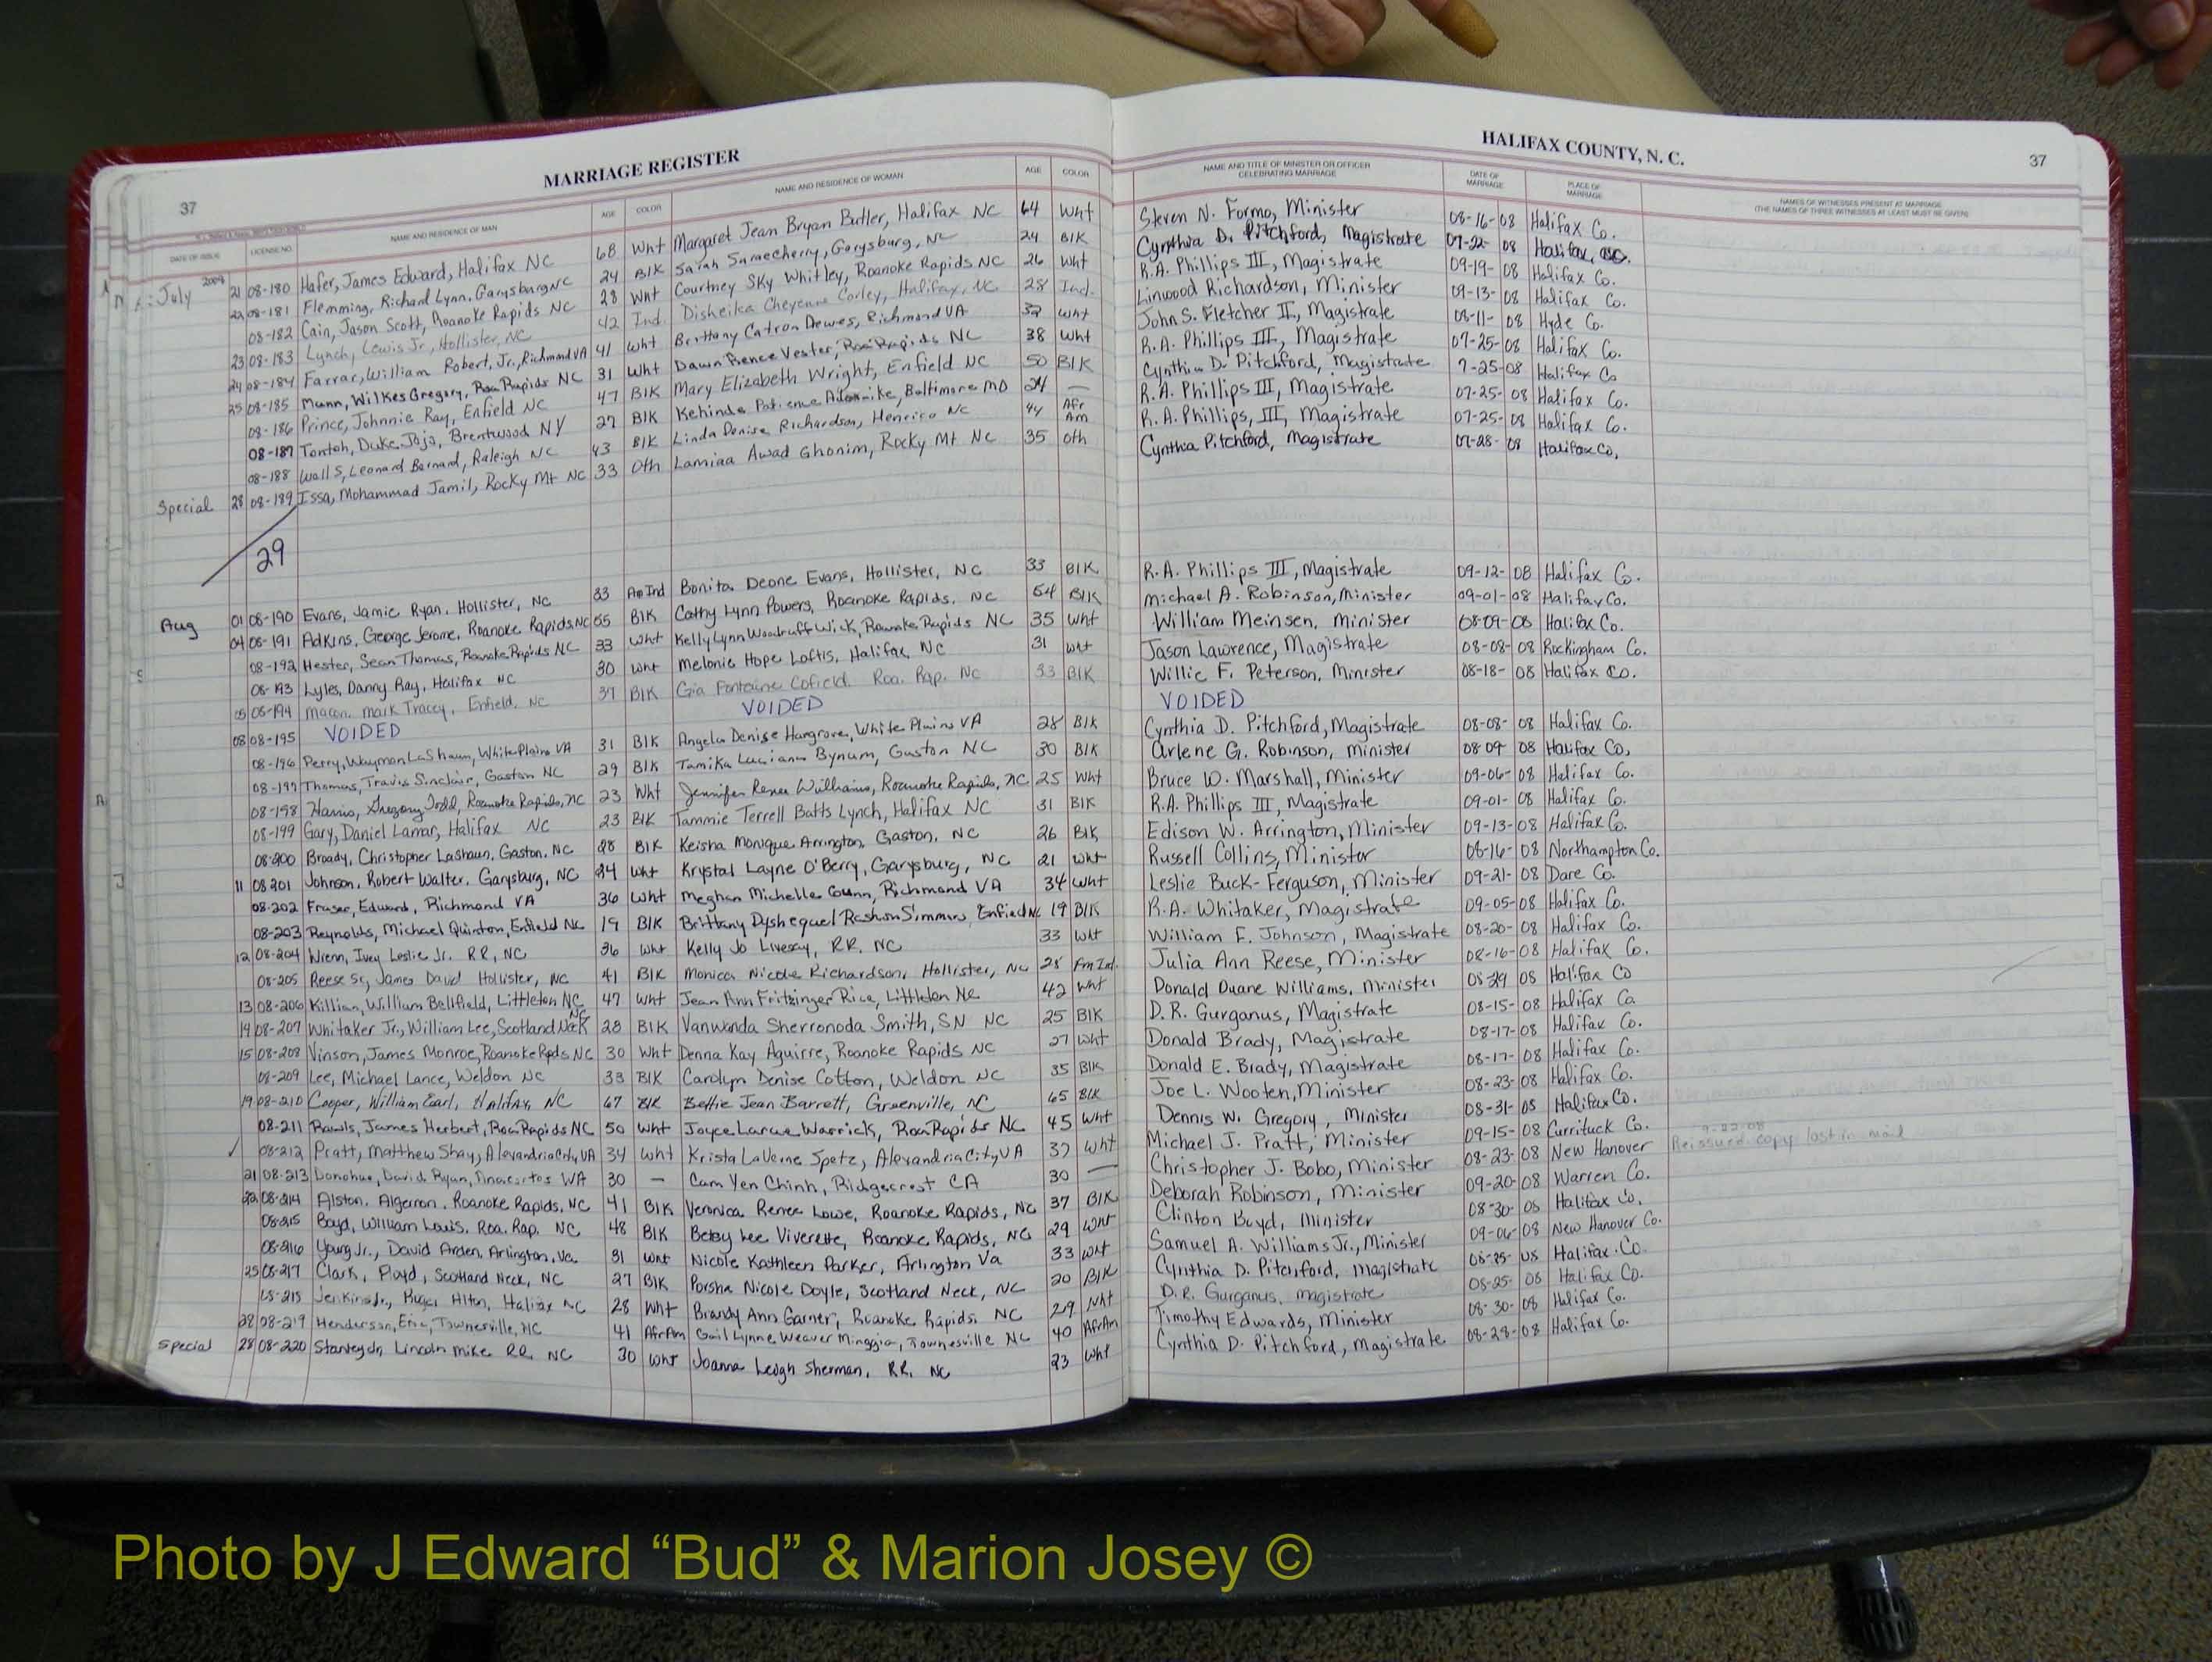 MARRIAGE REGISTER
HALIFAX COUNTY, N. C.
37
37
DATE OF ISSUE LICENSE NO. NAME AND RESIDENCE OF MAN AGE COLOR NAME AND RESIDENCE OF WOMAN AGE COLOR NAME AND TITLE OF MINISTER OR OFFICER CELEBRATING MARRIAGE DATE OF MARRIAGE PLACE OF MARRIAGE NAMES OF WITNESSES PRESENT AT MARRIAGE (THE NAMES OF THREE WITNESSES AT LEAST MUST BE GIVEN)
July 21 08-180 Hafer, James Edward, Halifax NC 68 Wht Margaret Jean Bryan Butler, Halifax NC 64 Wht Steven N. Formo, Minister 08-16-08 Halifax Co.
22 08-181 Flemming, Richard Lynn, Garysburg NC 24 Blk Sarah Samecherry, Garysburg, NC 24 Blk Cynthia D. Pitchford, Magistrate 07-22-08 Halifax,
08-182 Cain, Jason Scott, Roanoke Rapids NC 28 Wht Courtney Sky Whitley, Roanoke Rapids NC 26 Wht R.A. Phillips III, Magistrate 09-19-08 Halifax Co.
23 08-183 Lynch, Lewis Jr, Hollister, NC 42 Ind. Disheika Cheyenne Corley, Halifax, NC 28 Ind. Linwood Richardson, Minister 09-13-08 Halifax Co.
24 08-184 Farrar, William Robert, Jr., Richmond VA 41 Wht Brittany Catron Dewes, Richmond VA 32 Wht John S. Fletcher II, Magistrate 08-11-08 Hyde Co.
25 08-185 Munn, Wilkes Gregory, Roa Rapids NC 31 Wht Dawn Renee Vester, Roa Rapids NC 38 Wht R.A. Phillips III, Magistrate 07-25-08 Halifax Co.
08-186 Prince, Johnnie Ray, Enfield NC 47 Blk Mary Elizabeth Wright, Enfield NC 50 Blk Cynthia D. Pitchford, Magistrate 7-25-08 Halifax Co
08-187 Tontoh, Duke Jojo, Brentwood NY 27 Blk Kehinde Patience Baltimore MD 24 — R.A. Phillips III, Magistrate 07-25-08 Halifax Co.
08-188 Walls, Leonard Bernard, Raleigh NC 43 Blk Linda Denise Richardson, Henrico NC 44 Afr Am R.A. Phillips, III, Magistrate 07-25-08 Halifax Co.
Special 28 08-189 Issa, Mohammad Jamil, Rocky Mt NC 33 Oth Lamiaa Awad Ghonim, Rocky Mt NC 35 Oth Cynthia Pitchford, Magistrate 07-28-08 Halifax Co.
29
Aug 01 08-190 Evans, Jamie Ryan, Hollister, NC 33 Am Ind Bonita Deone Evans, Hollister, NC 33 Blk R.A. Phillips III, Magistrate 09-12-08 Halifax Co.
04 08-191 Adkins, George Jerome, Roanoke Rapids NC 55 Blk Cathy Lynn Powers, Roanoke Rapids, NC 54 Blk Michael A. Robinson, Minister 09-01-08 Halifax Co.
08-192 Hester, Sean Thomas, Roanoke Rapids NC 33 Wht Kelly Lynn Woodruff Wick, Roanoke Rapids NC 35 Wht William Meinsen, Minister 08-09-08 Halifax Co.
08-193 Lyles, Danny Ray, Halifax NC 30 Wht Melonie Hope Loftis, Halifax, NC 31 Wht Jason Lawrence, Magistrate 08-08-08 Rockingham Co.
05 08-194 Macon, Mark Tracey, Enfield, NC 37 Blk Gia Fontaine Cofield Roa. Rap. NC 33 Blk Willie F. Peterson, Minister 08-18-08 Halifax Co.
08 08-195 VOIDED VOIDED VOIDED
08-196 Perry, Waymon LaShaun, White Plains VA 31 Blk Angela Denise Hargrove, White Plains VA 28 Blk Cynthia D. Pitchford, Magistrate 08-08-08 Halifax Co.
08-197 Thomas, Travis Sinclair, Gaston NC 29 Blk Tamika Luciann Bynum, Gaston NC 30 Blk Arlene G. Robinson, Minister 08 09 08 Halifax Co.
08-198 Harris, Gregory Todd, Roanoke Rapids, NC 23 Wht Jennifer Renee Williams, Roanoke Rapids, NC 25 Wht Bruce W. Marshall, Minister 09-06-08 Halifax Co.
08-199 Gary, Daniel Lamar, Halifax NC 23 Blk Tammie Terrell Batts Lynch, Halifax NC 31 Blk R.A. Phillips III, Magistrate 09-01-08 Halifax Co.
08-200 Broady, Christopher Lashaun, Gaston, NC 28 Blk Keisha Monique Arrington, Gaston, NC 26 Blk Edison W. Arrington, Minister 09-13-08 Halifax Co.
11 08 201 Johnson, Robert Walter, Garysburg, NC 24 Wht Krystal Layne O'Berry, Garysburg, NC 21 Wht Russell Collins, Minister 08-16-08 Northampton Co.
08-202 Fraser, Edward, Richmond VA 36 Wht Meghan Michelle Gunn, Richmond VA 34 Wht Leslie Buck-Ferguson, Minister 09-21-08 Dare Co.
08-203 Reynolds, Michael Quinton, Enfield NC 19 Blk Brittany Dyshequel Rashon Simmons, Enfield NC 19 Blk R.A. Whitaker, Magistrate 09-05-08 Halifax Co.
12 08-204 Wrenn, Ivey Leslie Jr. RR, NC 36 Wht Kelly Jo Livesay, RR. NC 33 Wht William F. Johnson, Magistrate 08-20-08 Halifax Co.
08-205 Reese Sr, James David Hollister, NC 41 Blk Monica Nicole Richardson, Hollister, NC 28 Am Ind. Julia Ann Reese, Minister 08-16-08 Halifax Co.
13 08-206 Killian, William Bellfield, Littleton NC 47 Wht Jean Ann Fritzinger Rice, Littleton NC 42 Wht Donald Duane Williams, Minister 08 29 08 Halifax Co
14 08-207 Whitaker Jr., William Lee, Scotland Neck NC 28 Blk Vanwanda Sherronoda Smith, SN NC 25 Blk D.R. Gurganus, Magistrate 08-15-08 Halifax Co
15 08-208 Vinson, James Monroe, Roanoke Rpds NC 30 Wht Denna Kay Aguirre, Roanoke Rapids NC 27 Wht Donald Brady, Magistrate 08-17-08 Halifax Co.
08-209 Lee, Michael Lance, Weldon NC 33 Blk Carolyn Denise Cotton, Weldon NC 35 Blk Donald E. Brady, Magistrate 08-17-08 Halifax Co.
19 08-210 Cooper, William Earl, Halifax, NC 67 Blk Bettie Jean Barrett, Greenville, NC 65 Blk Joe L. Wooten, Minister 08-23-08 Halifax Co.
08-211 Rawls, James Herbert, Roa Rapids NC 50 Wht Joyce Larue Warrick, Roa Rapids NC 45 Wht Dennis W. Gregory, Minister 08-31-08 Halifax Co.
08-212 Pratt, Matthew Shay, Alexandria City, VA 34 Wht Krista LaVerne Spetz, Alexandria City VA 37 Wht Michael J. Pratt, Minister 09-15-08 Currituck Co. Reissued copy lost in mail
21 08-213 Donohue, David Ryan, Anacortes WA 30 — Cam Yen Chinh, Ridgecrest CA 30 — Christopher J. Bobo, Minister 08-23-08 New Hanover
22 08-214 Alston, Algernon, Roanoke Rapids, NC 41 Blk Veronica Renee Lowe, Roanoke Rapids, NC 37 Blk Deborah Robinson, Minister 09-20-08 Warren Co.
08-215 Boyd, William Louis, Roa. Rap. NC 48 Blk Betsy Lee Viverette, Roanoke Rapids, NC 29 Wht Clinton Boyd, Minister 08-30-08 Halifax Co.
08-216 Young Jr., David Arden, Arlington, Va. 31 Wht Nicole Kathleen Parker, Arlington Va 33 Wht Samuel A. Williams Jr., Minister 09-06-08 New Hanover Co.
25 08-217 Clark, Floyd, Scotland Neck, NC 27 Blk Porsha Nicole Doyle, Scotland Neck, NC 20 Blk Cynthia D. Pitchford, Magistrate 08-25-08 Halifax Co.
08-218 Jenkins Jr., Alton, Halifax NC 28 Wht Brandy Ann Garner, Roanoke Rapids, NC 29 Wht D.R. Gurganus, Magistrate 08-25-08 Halifax Co.
28 08-219 Henderson, Eric, Townesville, NC 41 AfrAm Gail Lynne Weaver Townesville NC 40 AfrAm Timothy Edwards, Minister 08-30-08 Halifax Co.
Special 28 08-220 Stanley Jr, Lincoln Mike RR, NC 30 Wht Joanna Leigh Sherman, RR, NC 23 Wht Cynthia D. Pitchford, Magistrate 08-28-08 Halifax Co.
Photo by J Edward “Bud” & Marion Josey ©